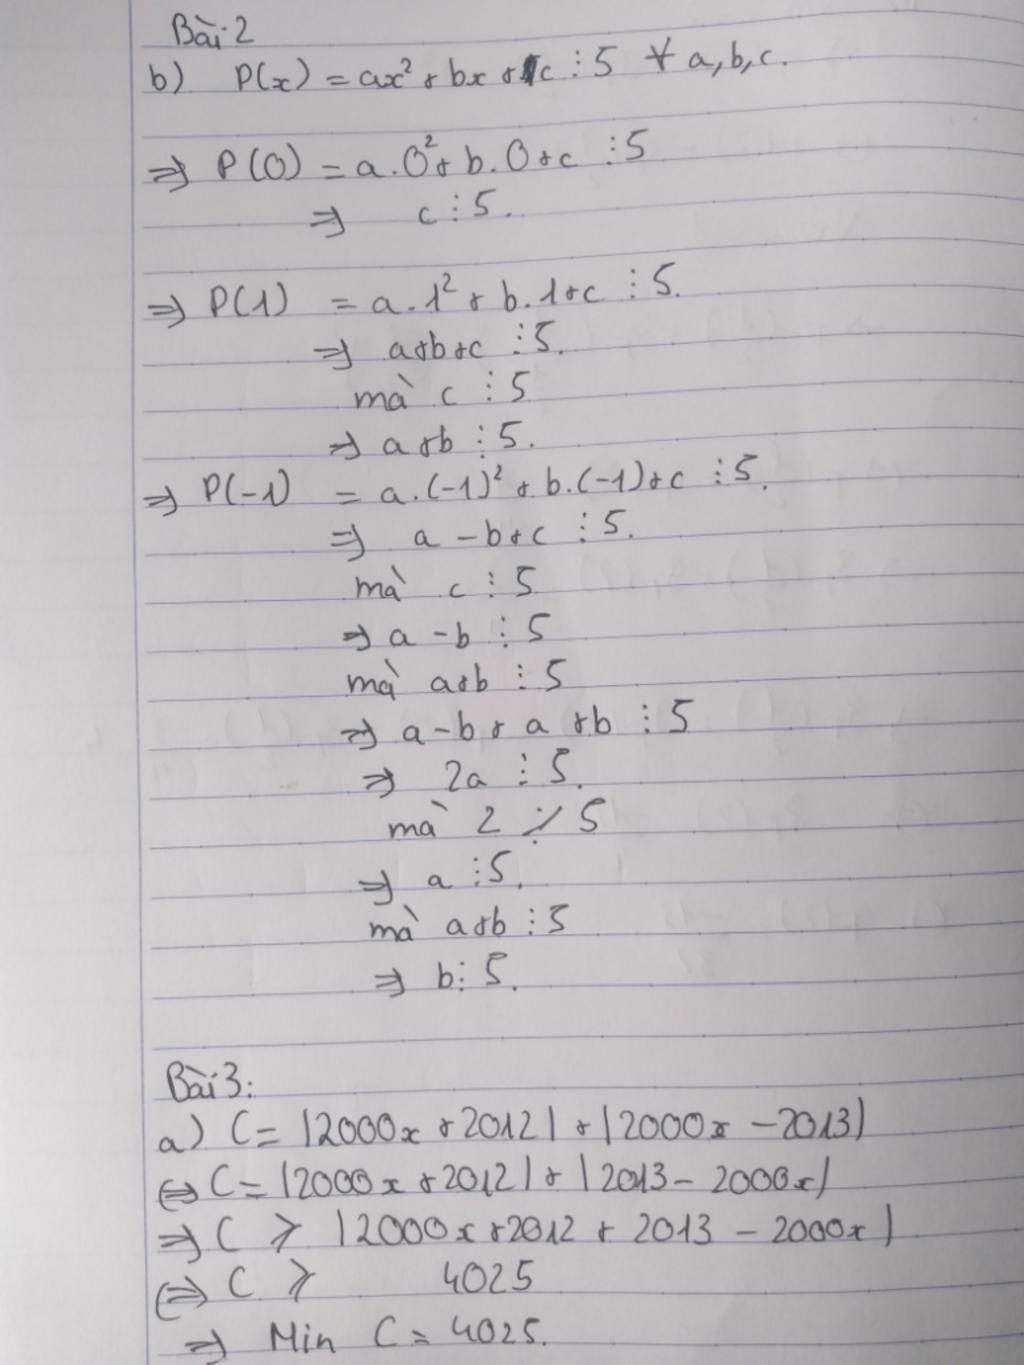 Bài 2
b) P(x) = ax² + bx + c ⋮ 5 ∀ a, b, c.
⇒ P(0) = a.0² + b.0 + c ⋮ 5
⇒ c ⋮ 5.
⇒ P(1) = a.1² + b.1 + c ⋮ 5.
⇒ a + b + c ⋮ 5.
mà c ⋮ 5
⇒ a + b ⋮ 5.
⇒ P(-1) = a.(-1)² + b.(-1) + c ⋮ 5.
⇒ a - b + c ⋮ 5.
mà c ⋮ 5
⇒ a - b ⋮ 5
mà a + b ⋮ 5
⇒ a - b + a + b ⋮ 5
⇒ 2a ⋮ 5.
mà 2 ⋮̸ 5
⇒ a ⋮ 5.
mà a + b ⋮ 5
⇒ b ⋮ 5.
Bài 3:
a) C = |2000x + 2012| + |2000x - 2013|
⇔ C = |2000x + 2012| + |2013 - 2000x|
⇒ C ≥ |2000x + 2012 + 2013 - 2000x|
⇔ C ≥ 4025
⇒ Min C = 4025.